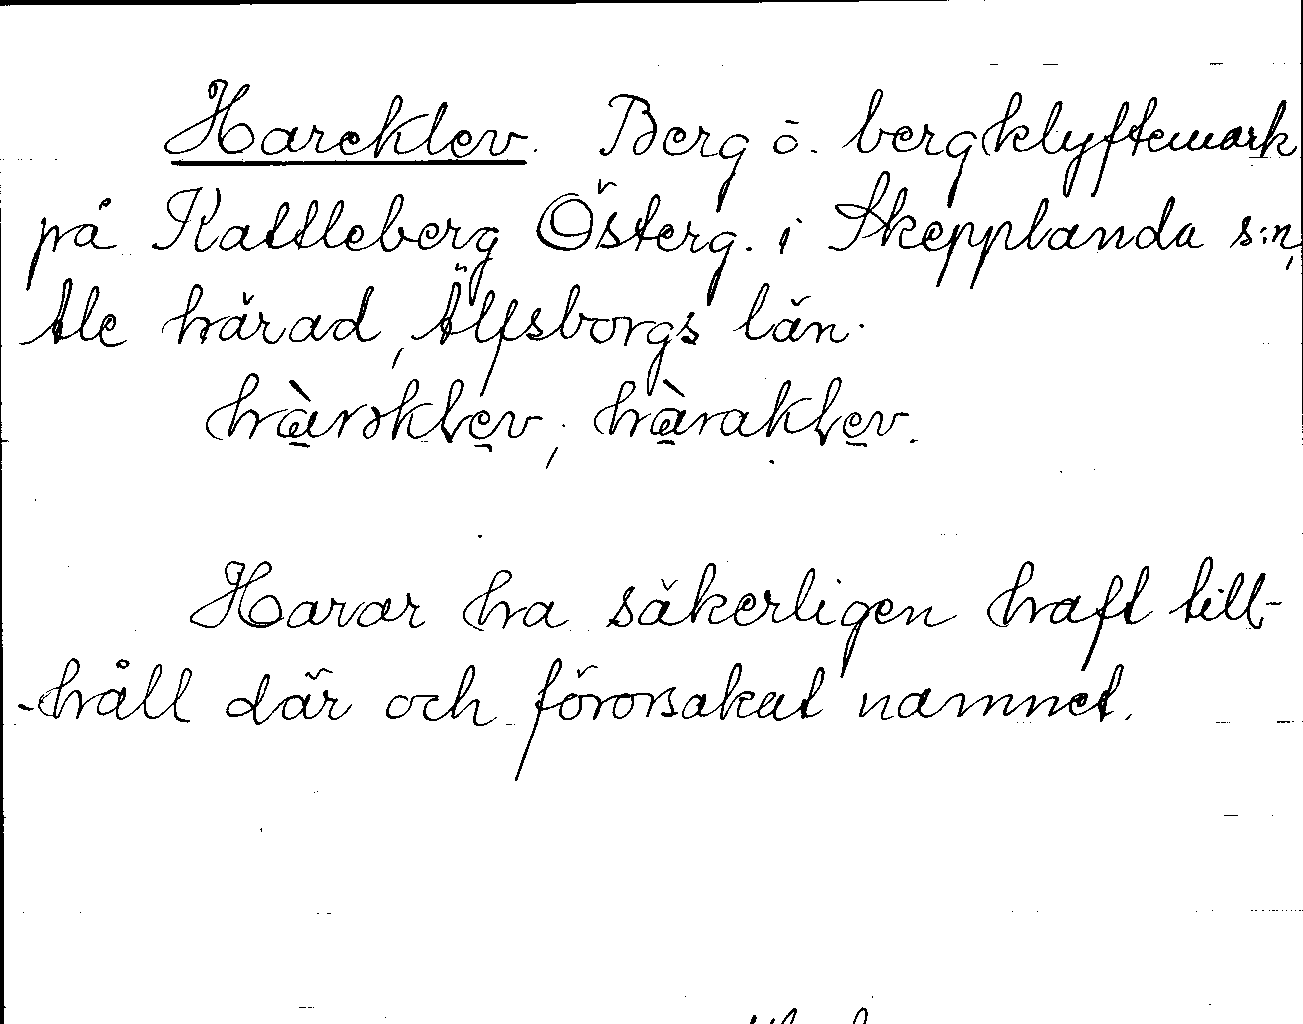 Hareklev. Berg o. bergklyftemark
på Kattleberg Österg. i Skepplanda s:n,
Ale härad, Älfsborgs län.
hàrəklev, hàraklev.
Harar ha säkerligen haft till-
-håll där och förorsakat namnet.